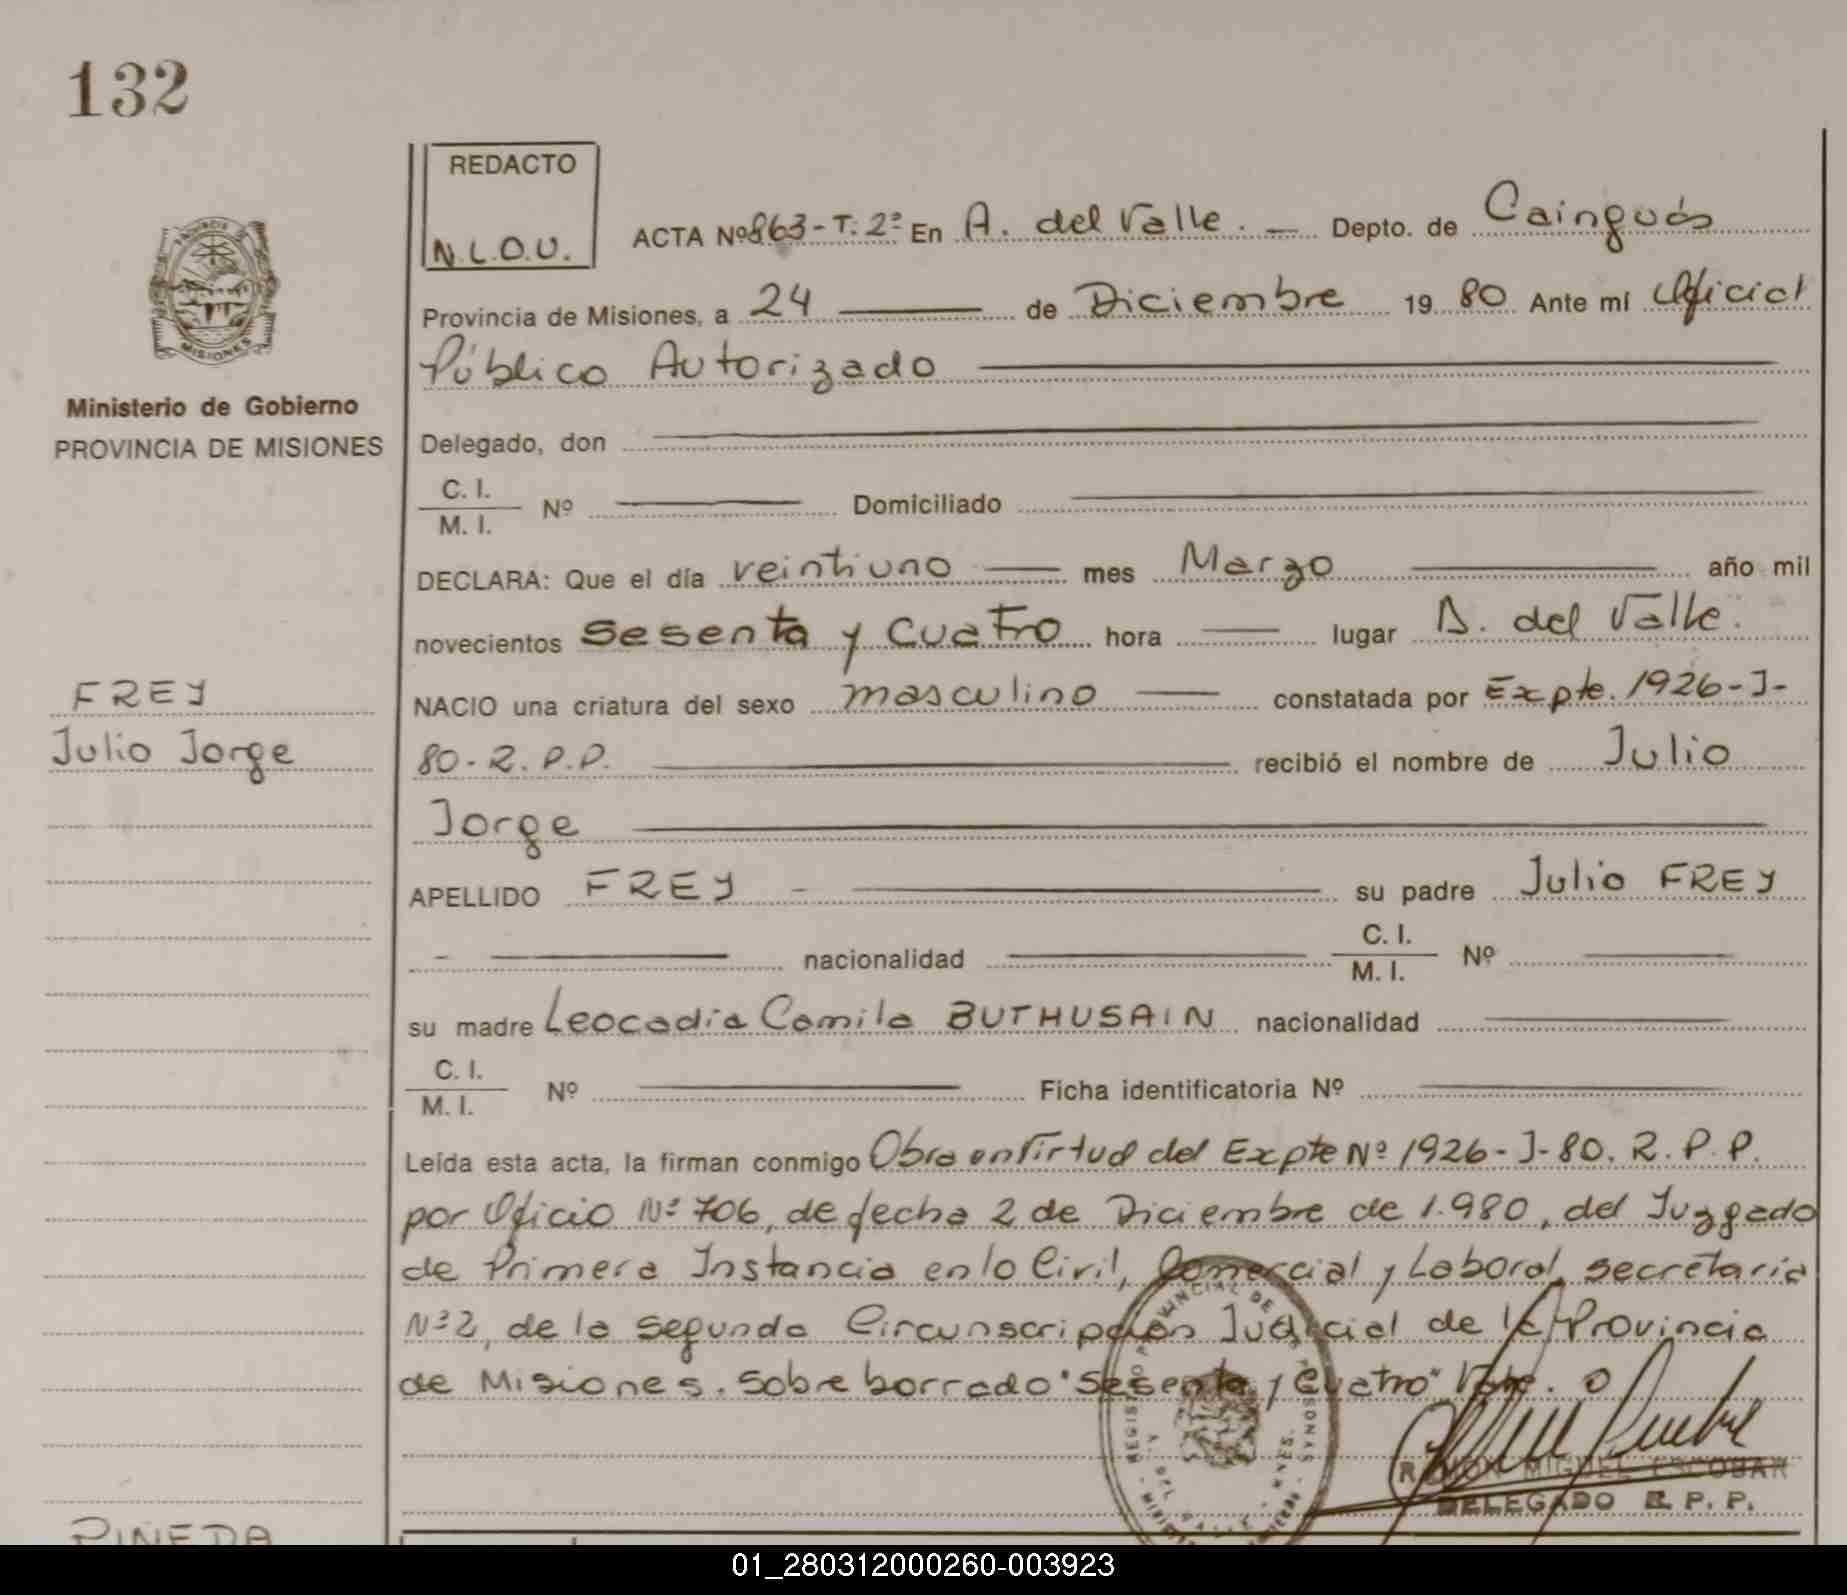 132
REDACTO
N.L.O.U.
ACTA Nº 863-T. 2º En A. del Valle. — Depto. de Cainguás
Provincia de Misiones, a 24 — de Diciembre 19 80 Ante mí Oficial
Público Autorizado
MISIONES
Ministerio de Gobierno
PROVINCIA DE MISIONES
Delegado, don
C. I.
M. I. Nº Domiciliado
DECLARA: Que el día veintiuno — mes Marzo — año mil
novecientos Sesenta y Cuatro hora — lugar A. del Valle.
FREY
Julio Jorge
NACIO una criatura del sexo masculino — constatada por Expte. 1926-J-
80-R.P.P. — recibió el nombre de Julio
Jorge
APELLIDO FREY - — su padre Julio FREY
- — nacionalidad — C. I.
M. I. Nº —
su madre Leocadia Camila BUTHUSAIN nacionalidad —
C. I.
M. I. Nº — Ficha identificatoria Nº —
Leída esta acta, la firman conmigo Obra en Virtud del Expte Nº 1926-J-80. R.P.P.
por Oficio Nº 706, de fecha 2 de Diciembre de 1.980, del Juzgado
de Primera Instancia en lo Civil, Comercial y Laboral, secretaria
Nº 2, de la segunda Circunscripción Judicial de la Provincia
de Misiones. Sobre borrado "Sesenta y Cuatro" Vale.
REGISTRO PROVINCIAL DE LAS PERSONAS
A. DEL VALLE - MNES.
RAMON MIGUEL ESCOBAR
DELEGADO R. P. P.
PINEDA
01_280312000260-003923